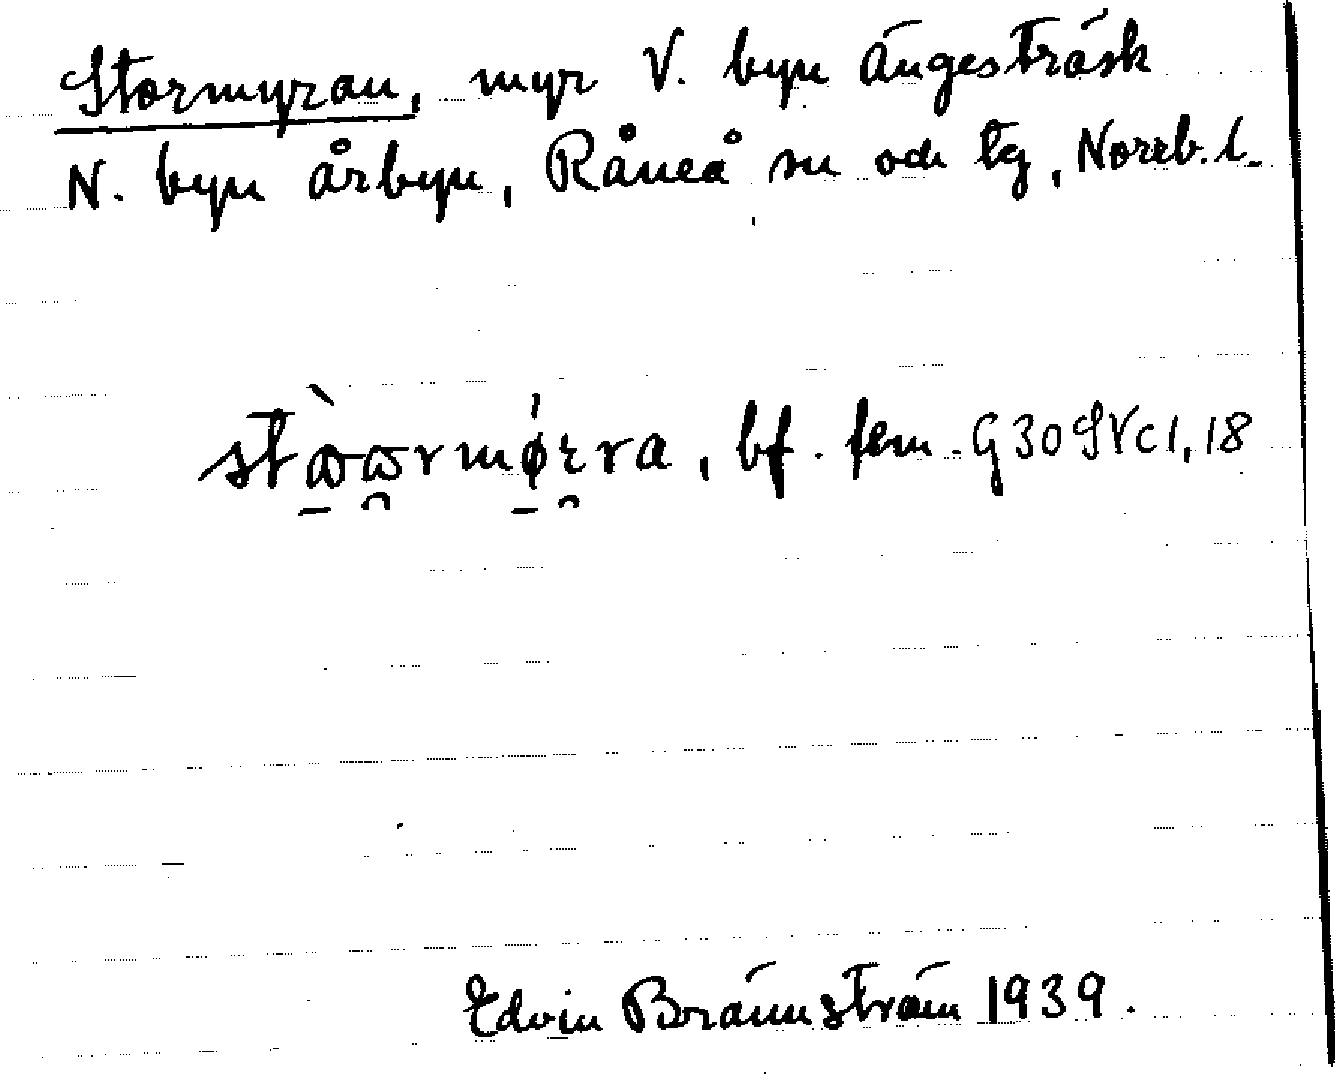 Stormyran, myr V. byn Ängesträsk
N. byn Årbyn, Råneå sn och tg, Norrb. l.
bf. fem. G30SVc1,18
Edvin Brännström 1939.